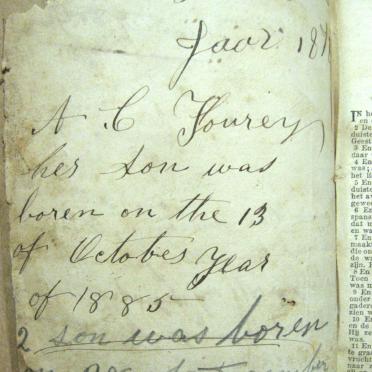 Jaar 187
A C Fourey
her son was
boren on the 13
of Octobes year
of 1885
2 son was boren
IN he
en
2 De
duist
Geest
3 En
daar
4 En
was;
het li
5 En
duist
het av
gewe
6 En
spans
dat u
en wa
7 En
maak
die on
de wa
zijn.
8 En
Toen
was m
9 En
onder
gader
zien.
10 En
en de
Hij
was.
11 En
te gra
vruch